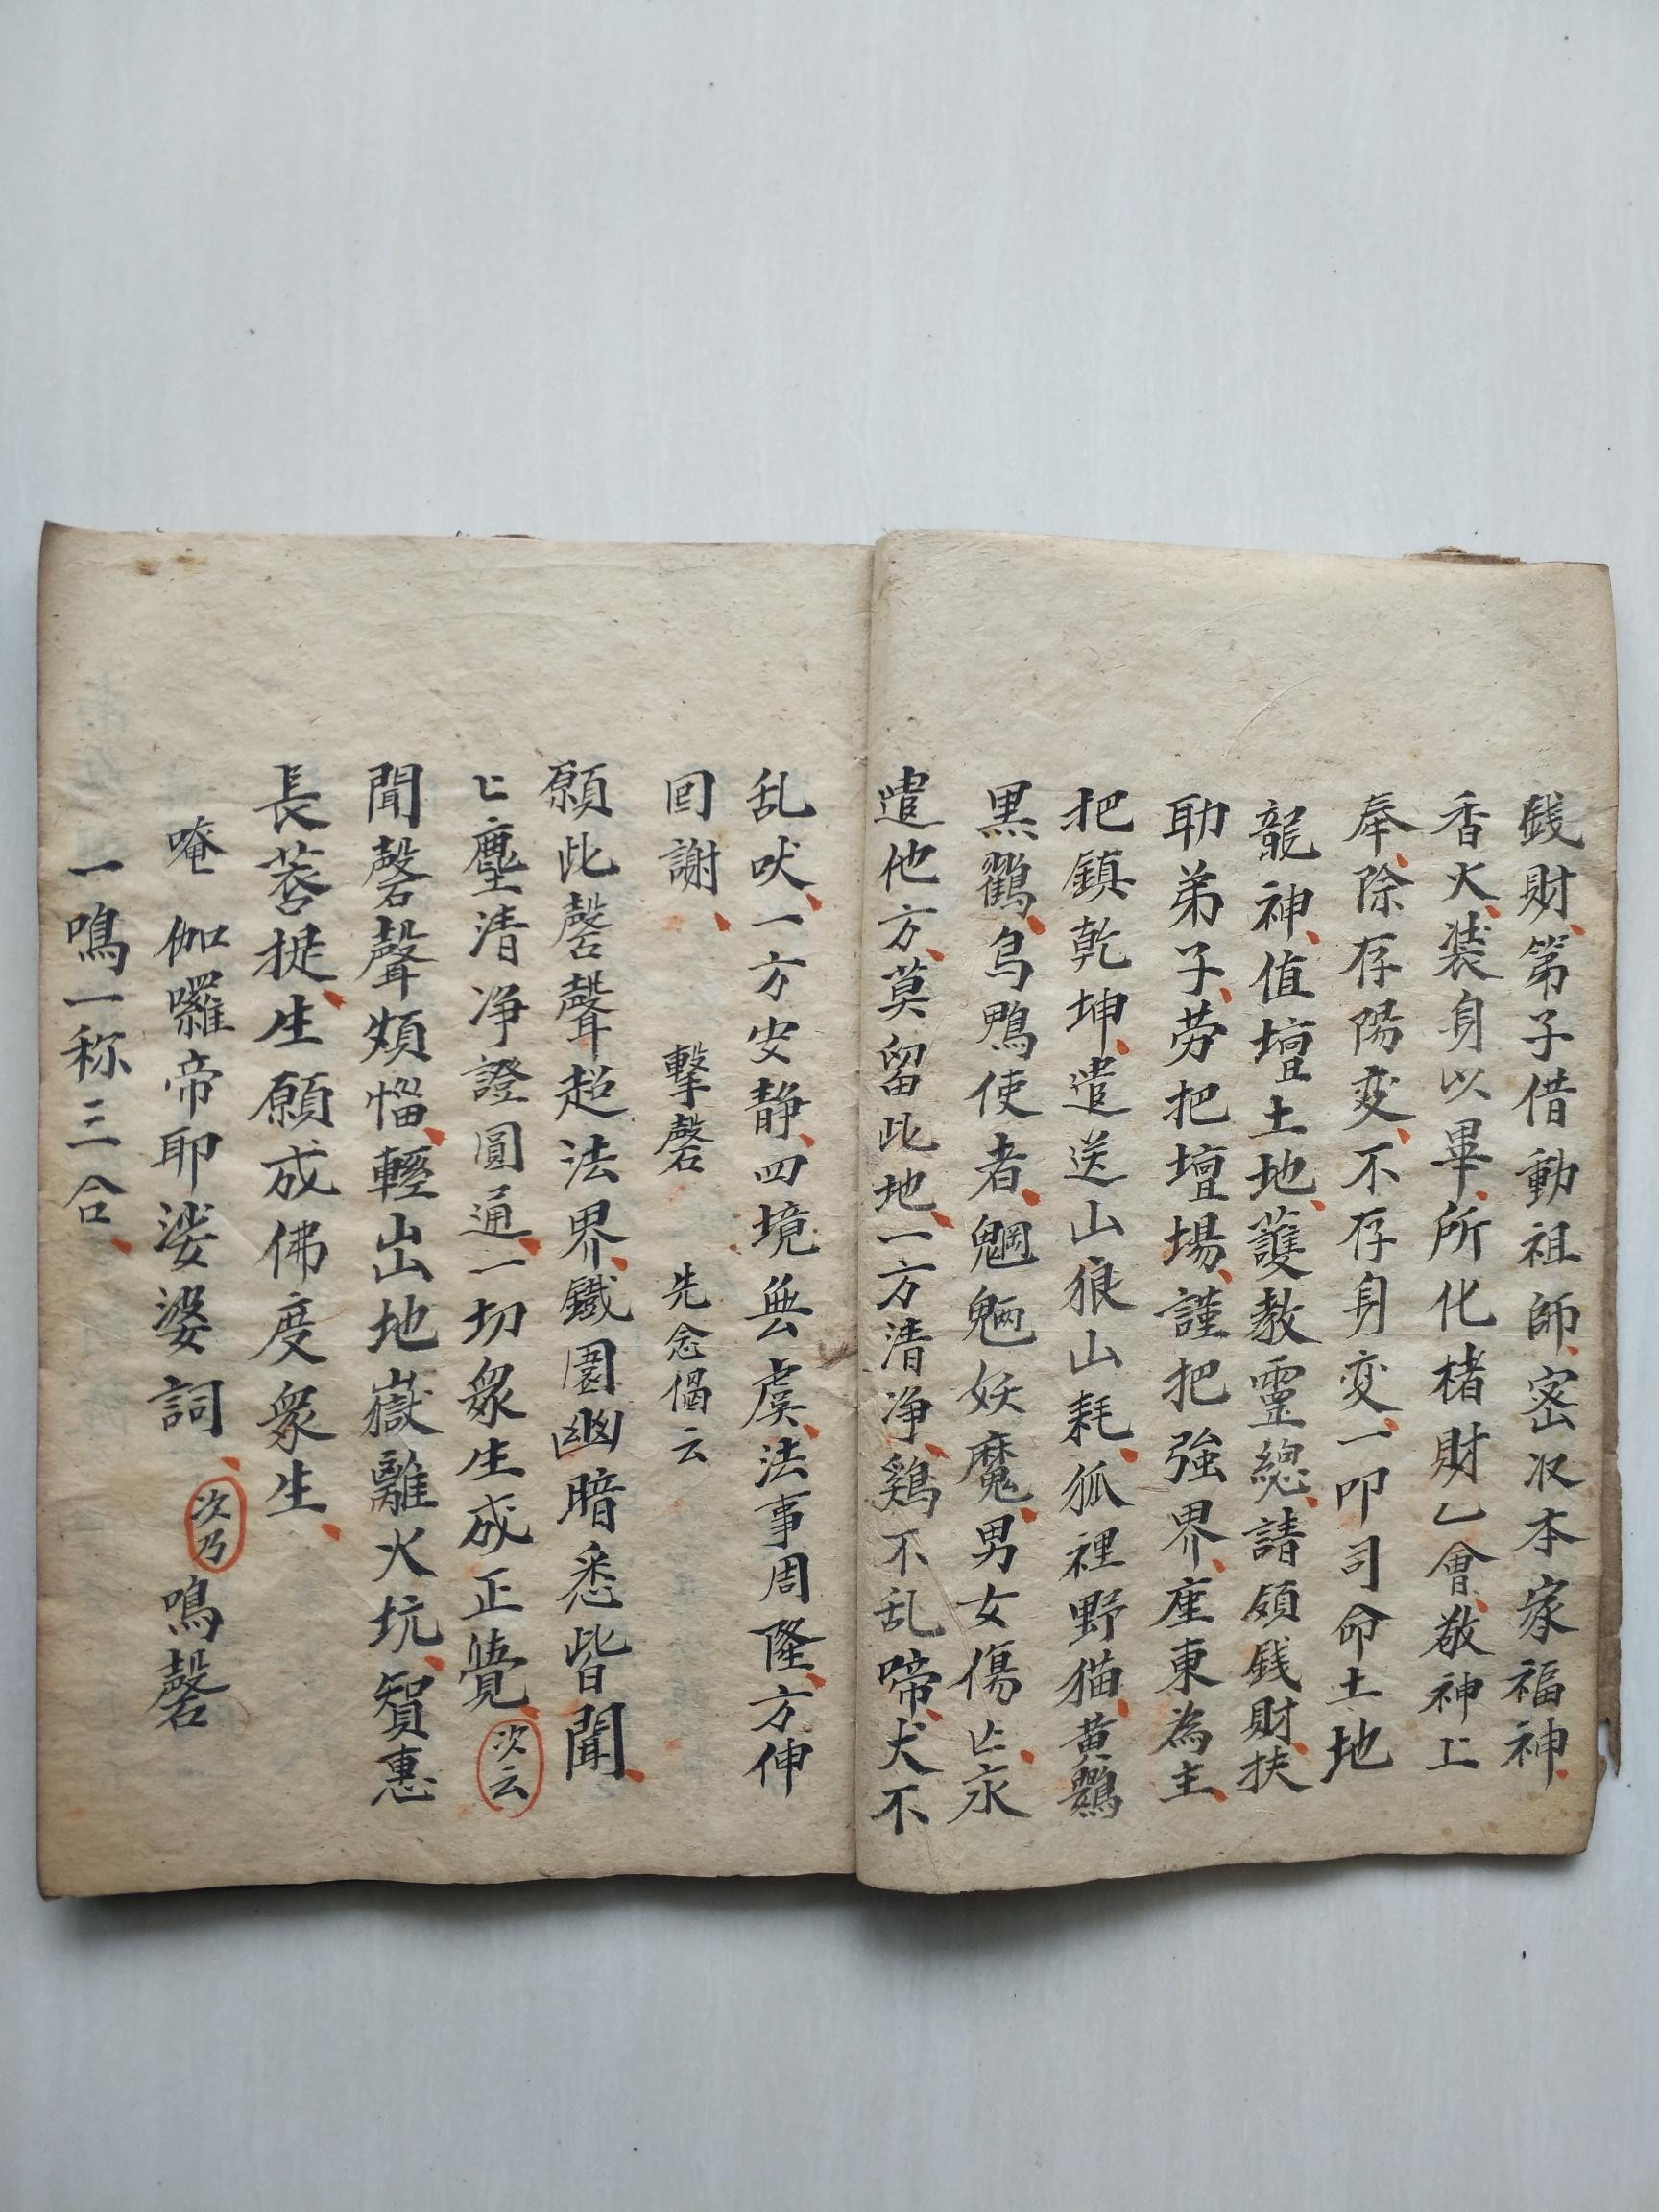 錢財、第子借動祖師、密収本家福神、
香火、装身以畢、所化楮財乙會、敬神上
奉、除存陽变、不存身变、一叩司命土地
龍神、值壇土地、護教靈總、請領錢財、扶
耡弟子、劳把壇場、謹把強界、座東為主、
把鎮乾坤、遣送山狼山耗、狐裡野猫、黄鷄
黑鸛、烏鴨使者、魍魎妖魔、男女傷亡、永
遣他方、莫留此地、一方清净、鷄不乱啼、犬不
乱吠、一方安静、四境無虞、法事周隆、方伸
回謝、　撃磬　先念偈云
願此磬聲超法界、鐵圍幽暗悉皆聞、
匕塵清净證圓通、一切衆生成正覺、次云
聞磬聲煩惱輕、山地嶽離火坑、智惠
長菩提生、願成佛度衆生、
唵　伽囉帝耶娑婆詞、次乃鳴磬
一鳴一称三合、